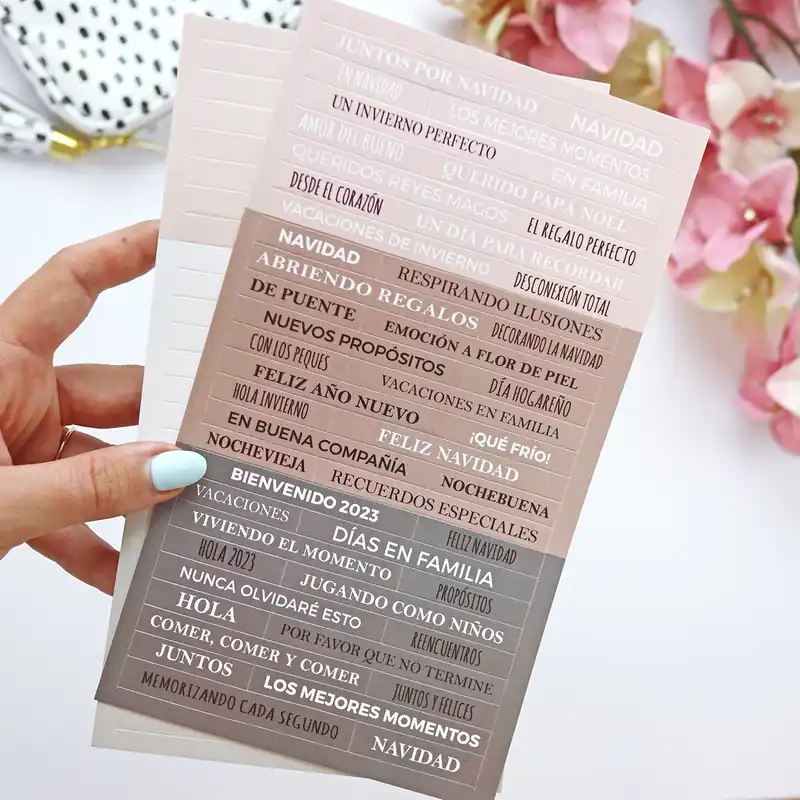 JUNTOS POR NAVIDAD
EN NAVIDAD LOS MEJORES MOMENTOS NAVIDAD
UN INVIERNO PERFECTO
AMOR DEL BUENO QUERIDO PAPÁ NOEL EN FAMILIA
QUERIDOS REYES MAGOS
DESDE EL CORAZÓN UN DÍA PARA RECORDAR EL REGALO PERFECTO
VACACIONES DE INVIERNO DESCONEXIÓN TOTAL
NAVIDAD RESPIRANDO ILUSIONES
ABRIENDO REGALOS DECORANDO LA NAVIDAD
DE PUENTE EMOCIÓN A FLOR DE PIEL
NUEVOS PROPÓSITOS DÍA HOGAREÑO
CON LOS PEQUES VACACIONES EN FAMILIA
FELIZ AÑO NUEVO ¡QUÉ FRÍO!
HOLA INVIERNO FELIZ NAVIDAD
EN BUENA COMPAÑÍA NOCHEBUENA
NOCHEVIEJA RECUERDOS ESPECIALES
BIENVENIDO 2023 FELIZ NAVIDAD
VACACIONES DÍAS EN FAMILIA
VIVIENDO EL MOMENTO PROPÓSITOS
HOLA 2023 JUGANDO COMO NIÑOS
NUNCA OLVIDARÉ ESTO REENCUENTROS
HOLA POR FAVOR QUE NO TERMINE
COMER, COMER Y COMER JUNTOS Y FELICES
JUNTOS LOS MEJORES MOMENTOS
MEMORIZANDO CADA SEGUNDO NAVIDAD